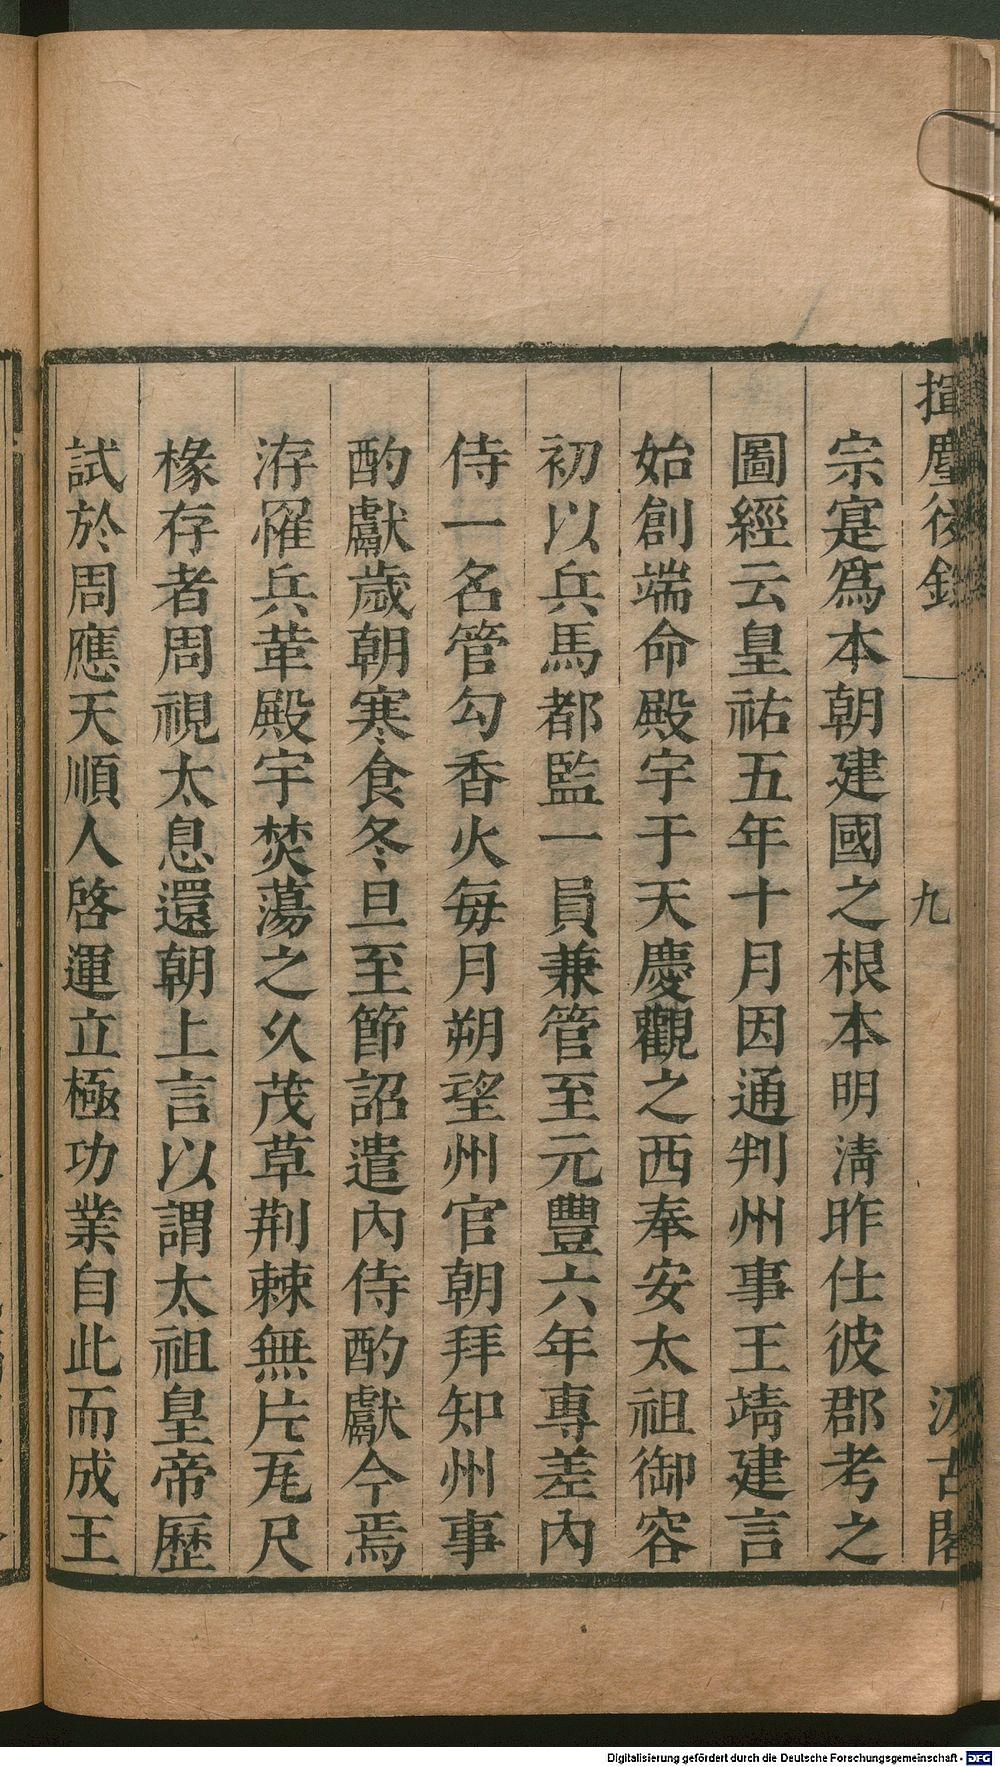 揮麈後錄
九
汲古閣
宗寔爲本朝建國之根本明淸昨仕彼郡考之
圖經云皇祐五年十月因通判州事王靖建言
始創端命殿宇于天慶觀之西奉安太祖御容
初以兵馬都監一員兼管至元豐六年專差內
侍一名管勾香火每月朔望州官朝拜知州事
酌獻歲朝寒食冬旦至節詔遣內侍酌獻今焉
洊罹兵革殿宇焚蕩之久茂草荆棘無片瓦尺
椽存者周視太息還朝上言以謂太祖皇帝歷
試於周應天順人啓運立極功業自此而成王
Digitalisierung gefördert durch die Deutsche Forschungsgemeinschaft - DFG